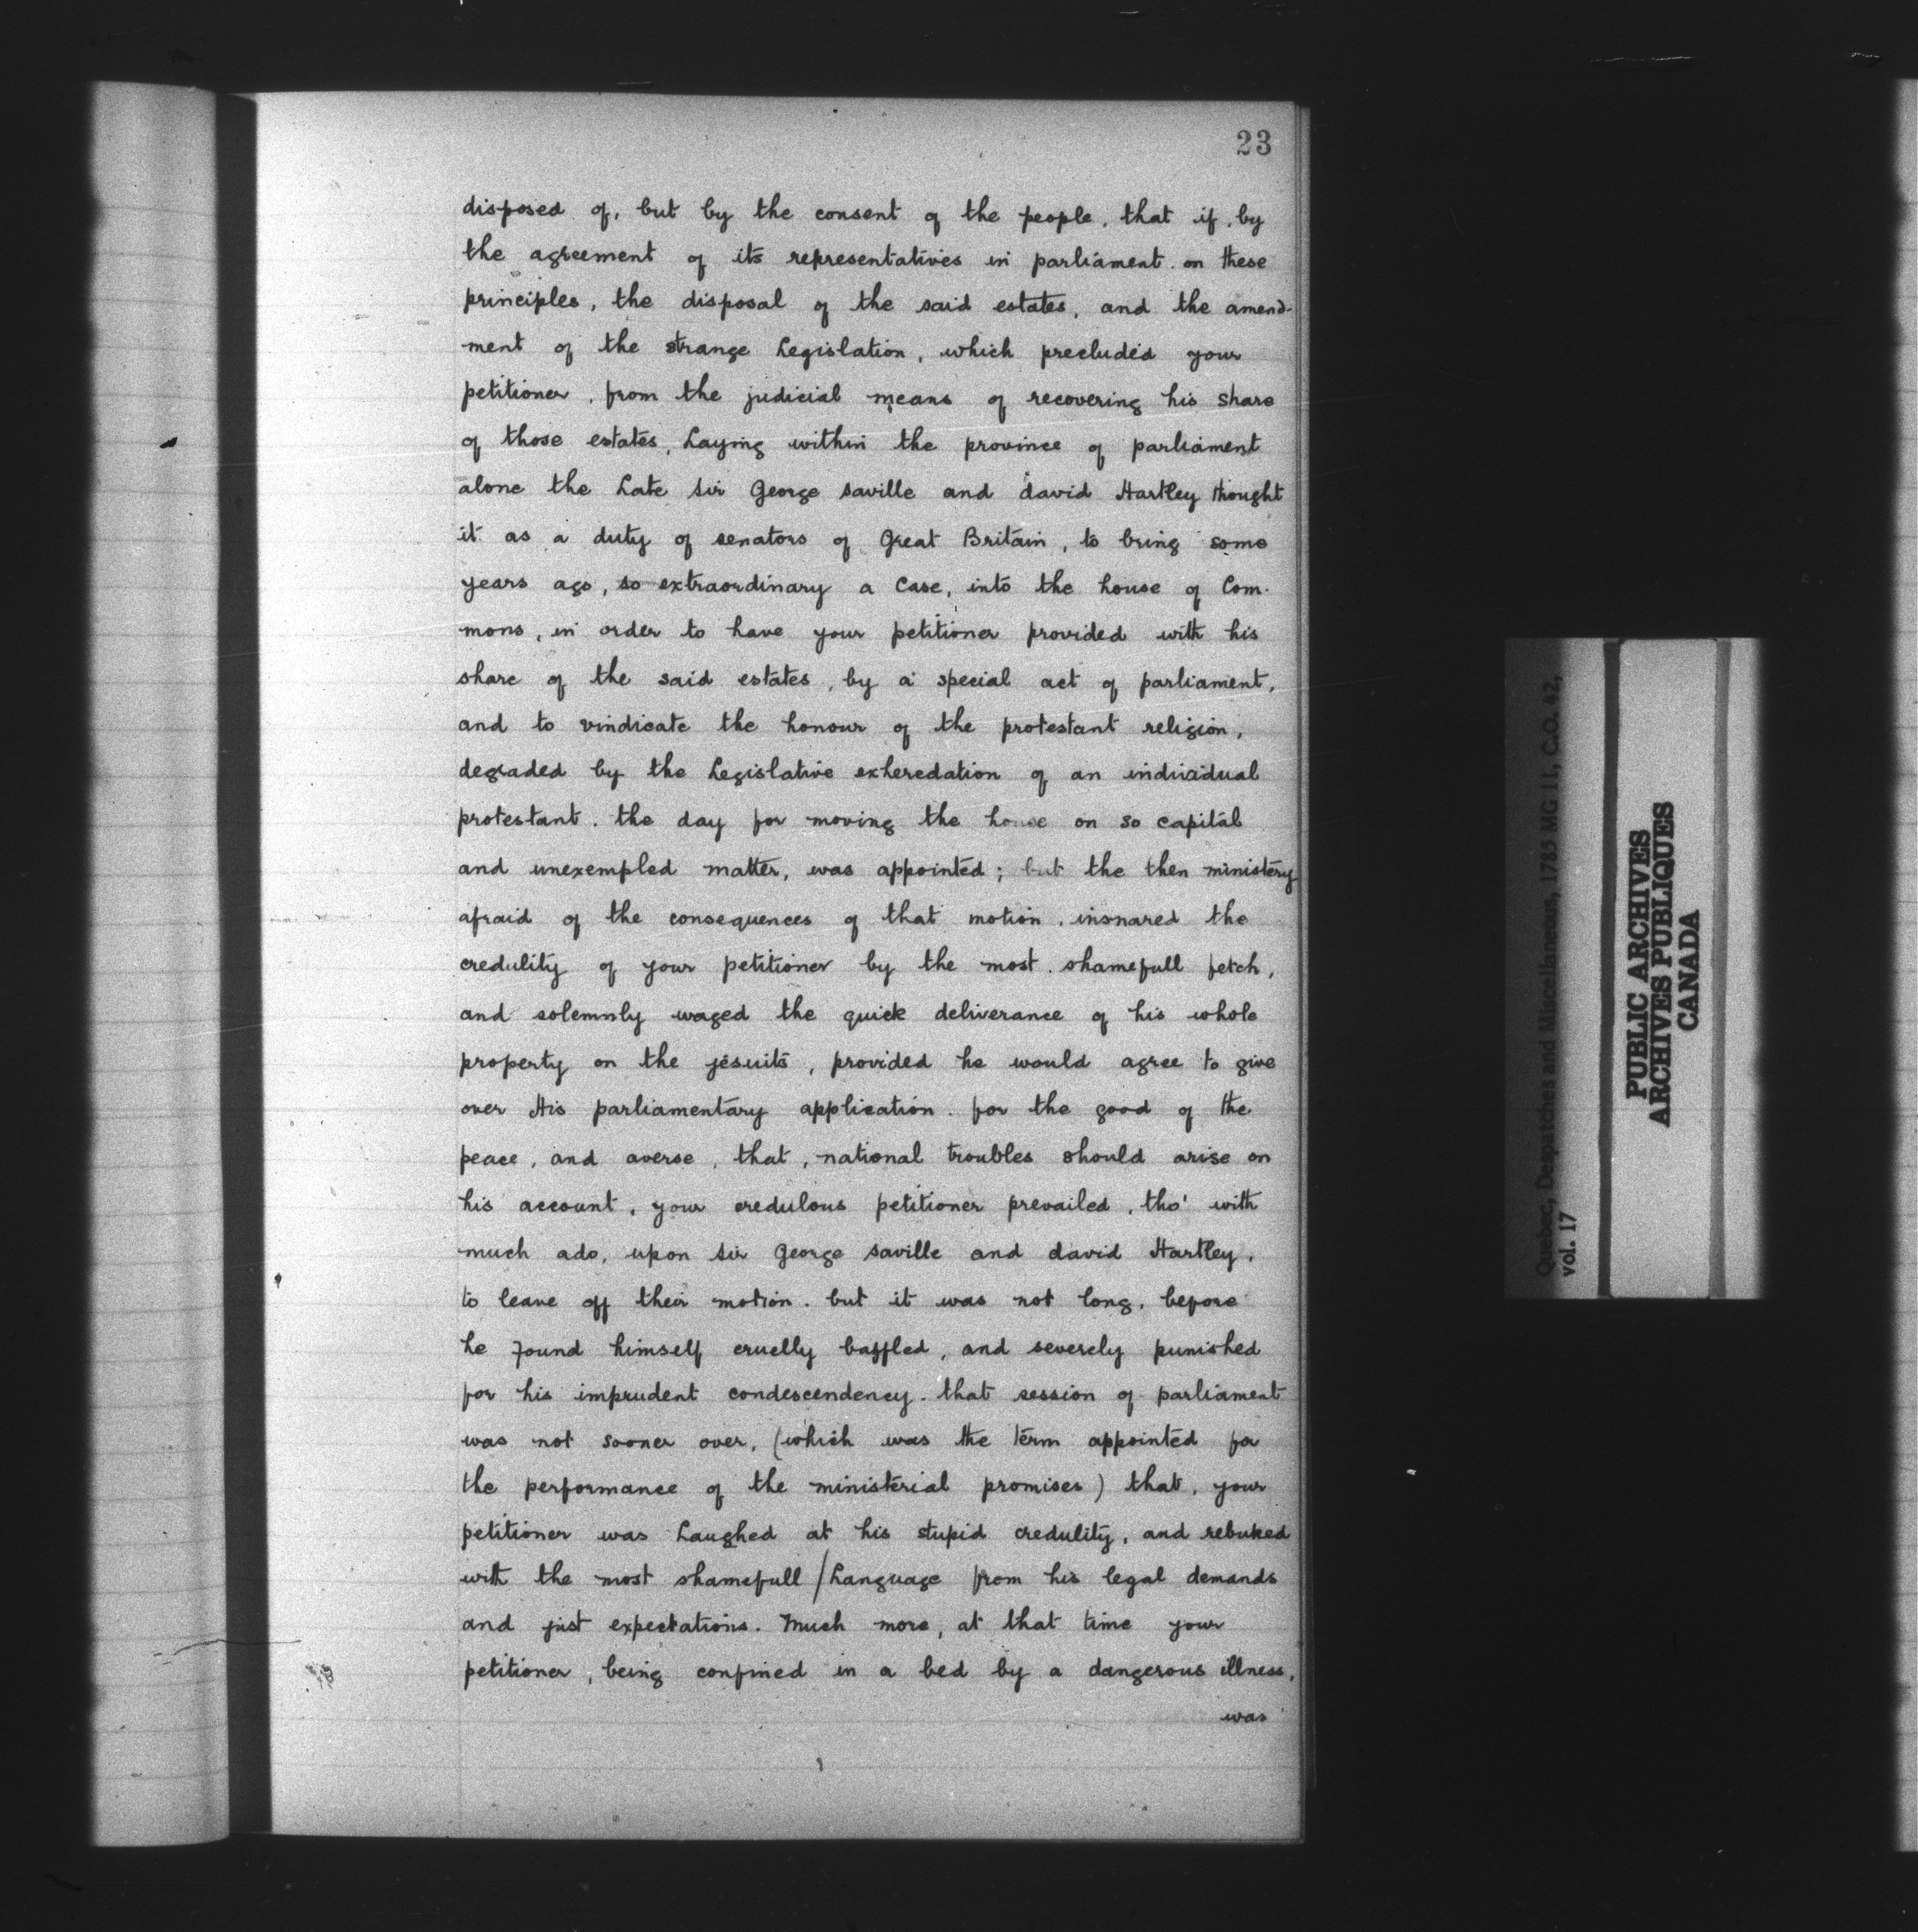 23
disposed of, but by the consent of the people, that if, by
the agreement of its representatives in parliament. on these
principles, the disposal of the said estates, and the amend-
ment of the strange Legislation, which precluded your
petitioner, from the judicial means of recovering his share
of those estates, Laying within the province of parliament
alone the Late Sir George Saville and david Hartley thought
it as a duty of senators of Great Britain, to bring some
years ago, so extraordinary a Case, into the house of Com-
mons, in order to have your petitioner provided with his
share of the said estates, by a special act of parliament,
and to vindicate the honour of the protestant religion,
degraded by the Legislative exheredation of an individual
protestant. the day for moving the house on so capital
and unexempled matter, was appointed; but the then ministery
afraid of the consequences of that motion, insnared the
credulity of your petitioner by the most shamefull fetch,
and solemnly waged the quick deliverance of his whole
property on the jesuits, provided he would agree to give
over His parliamentary application. for the good of the
peace, and averse, that, national troubles should arise on
his account, your credulous petitioner prevailed, tho' with
much ado, upon Sir George Saville and david Hartley,
to leave off their motion. but it was not long, before
he found himself cruelly baffled, and severely punished
for his imprudent condescendency. that session of parliament
was not sooner over, (which was the term appointed for
the performance of the ministerial promises) that, your
petitioner was Laughed at his stupid credulity, and rebuked
with the most shamefull / Language from his legal demands
and just expectations. Much more, at that time your
petitioner, being confined in a bed by a dangerous illness,
was
Quebec, Despatches and Miscellaneous, 1785 MG 11, C.O. 42,
vol. 17
PUBLIC ARCHIVES
ARCHIVES PUBLIQUES
CANADA